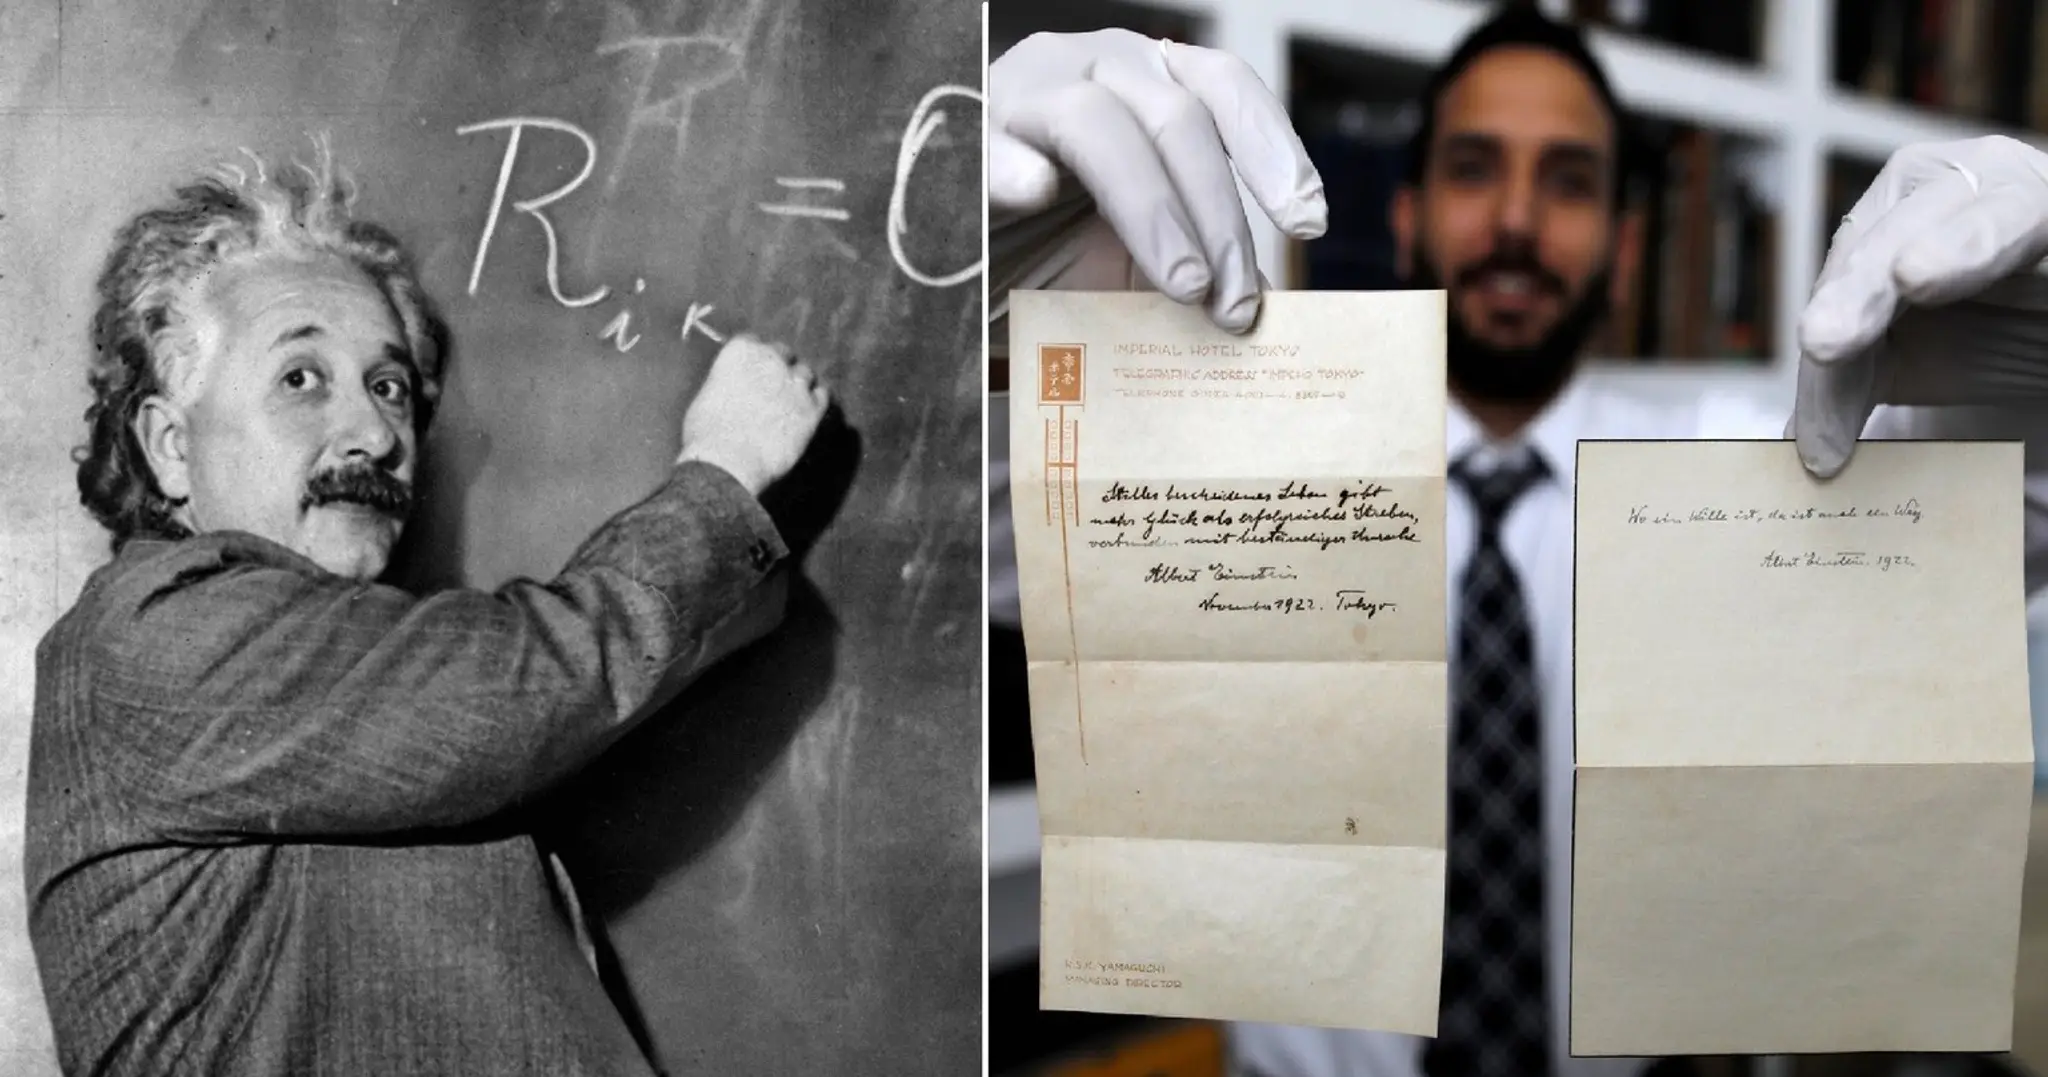 R i k = 0
IMPERIAL HOTEL TOKYO
TELEGRAPHIC ADDRESS "IMPEHO TOKYO"
TELEPHONE GINZA
帝国
ホテル
Stilles bescheidenes Leben gibt
mehr Glück als erfolgreiches Streben,
verbunden mit beständiger Unruhe
Albert Einstein
November 1922. Tokyo.
YAMAGUCHI
MANAGING DIRECTOR
Wo ein Wille ist, da ist auch ein Weg.
Albert Einstein. 1922.